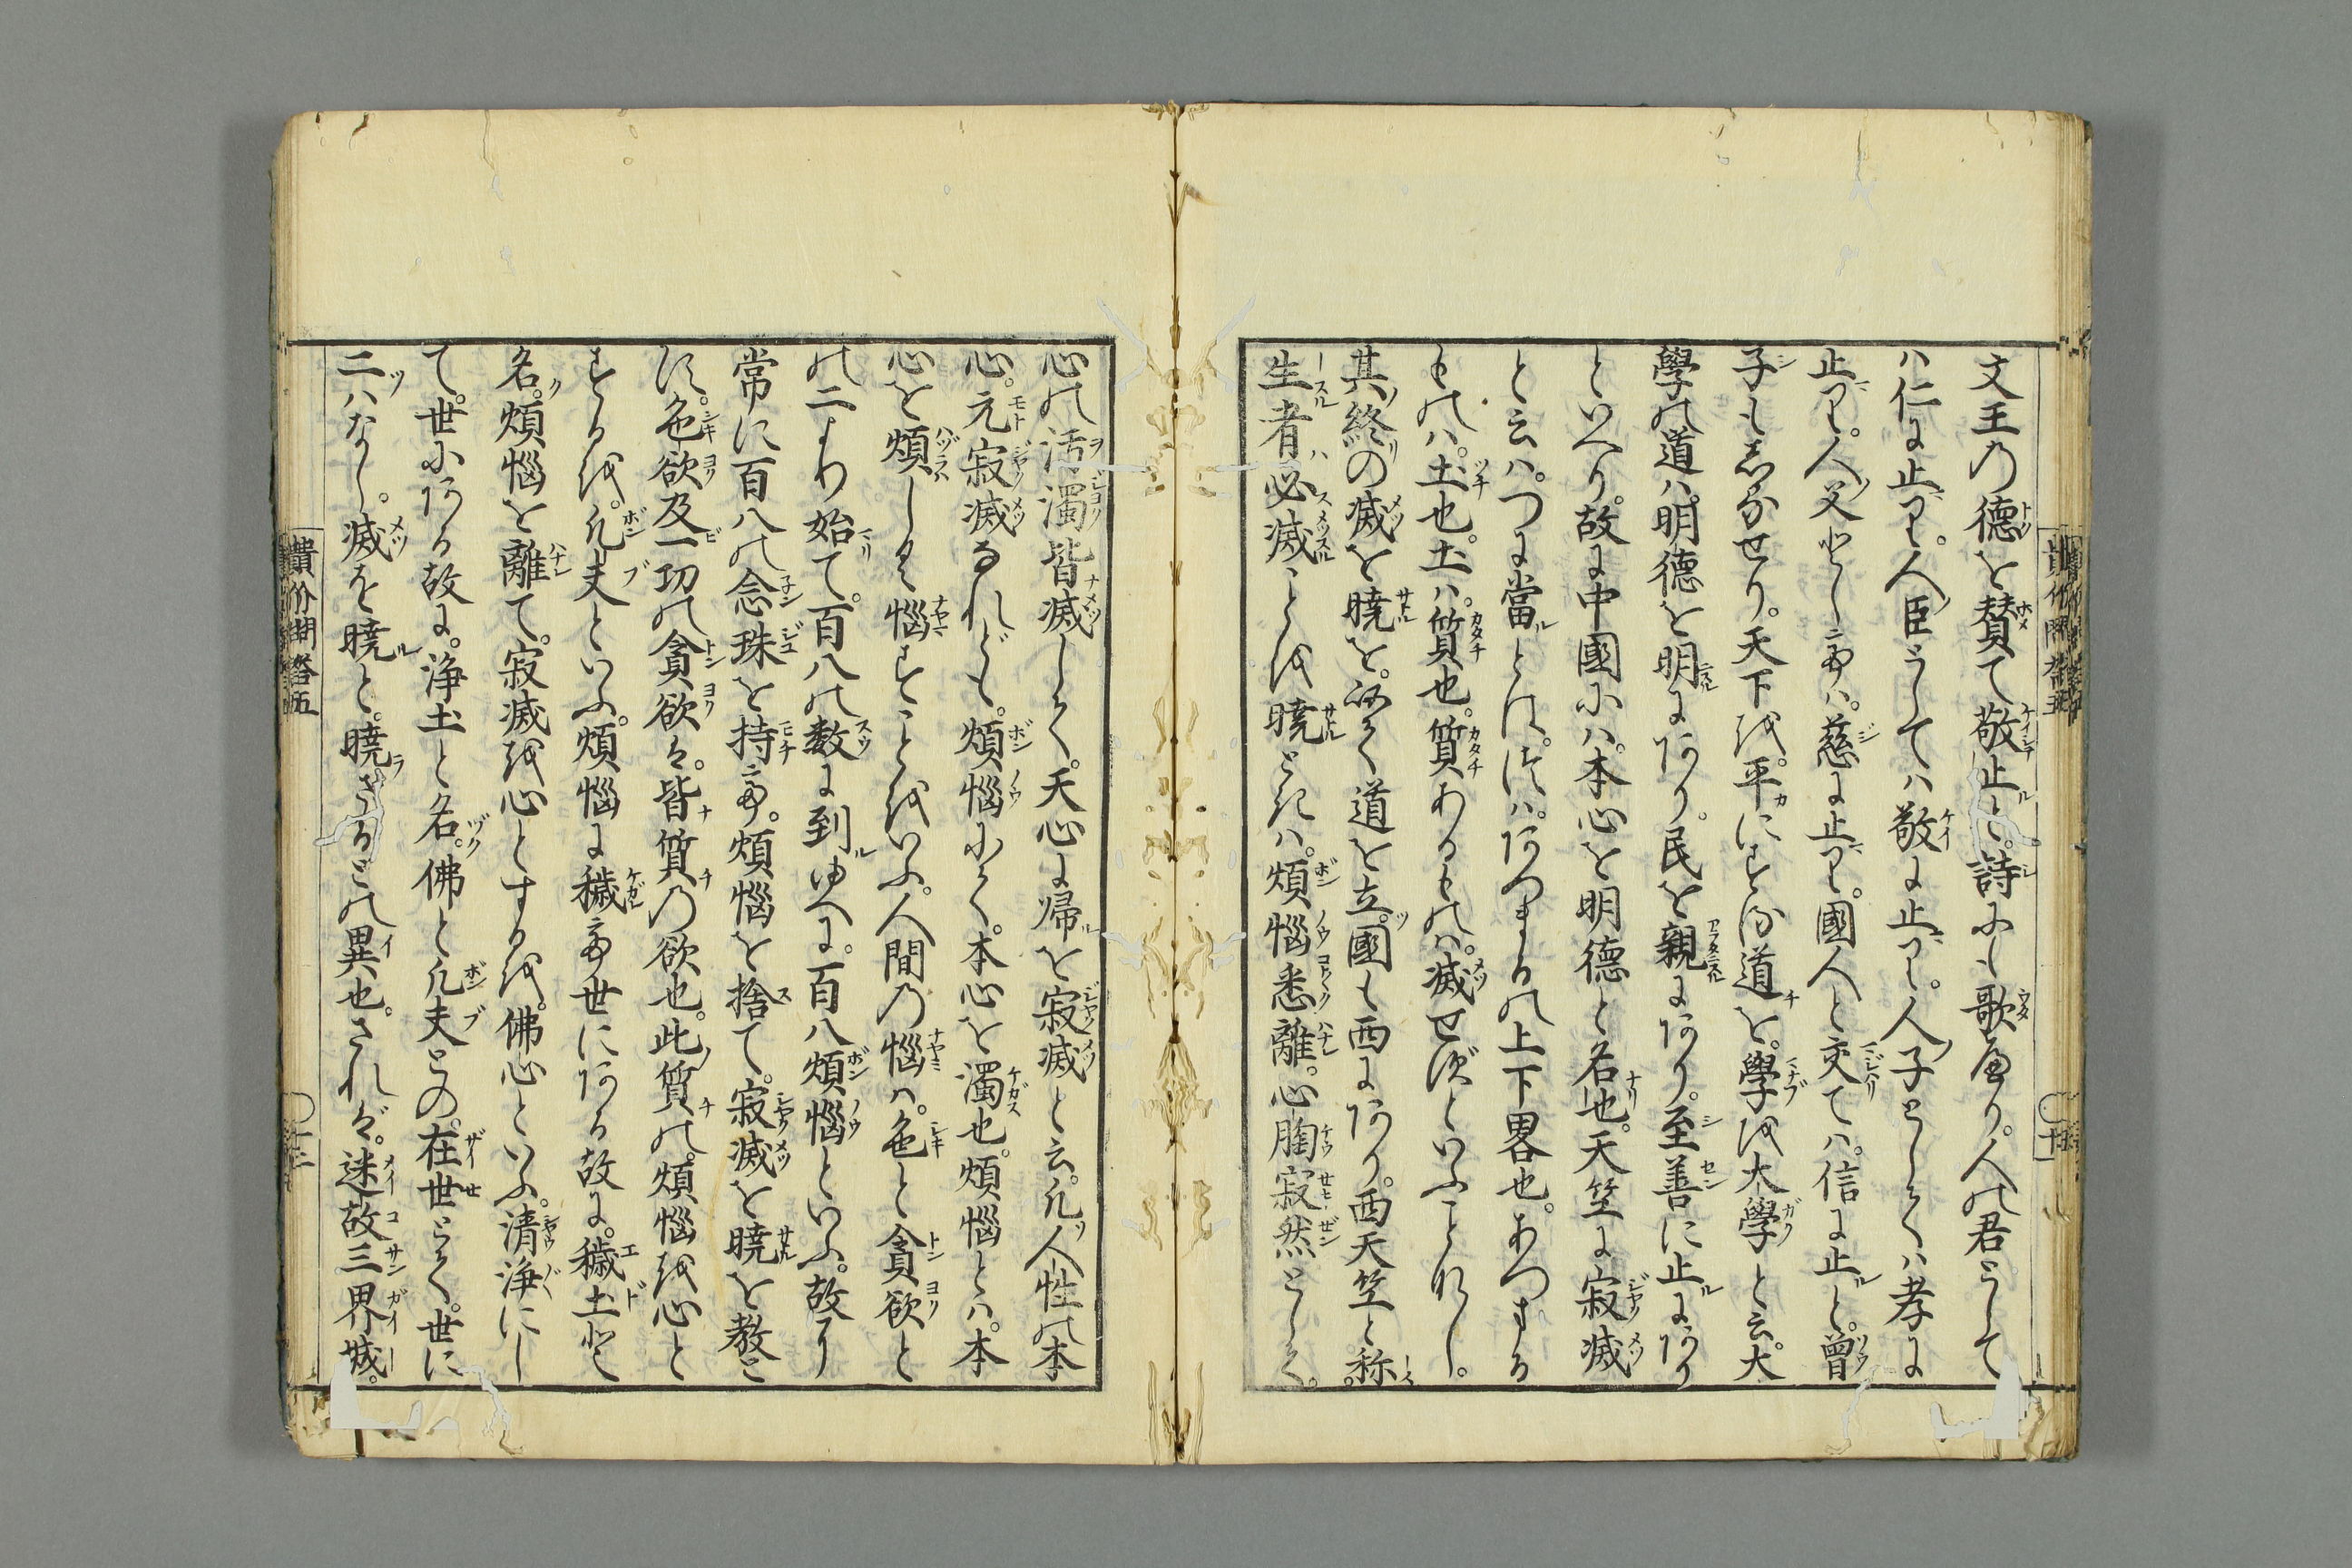 文王の徳を賛て敬止と。詩にも歌へり。人の君としては
ハ仁に止り。人臣としてハ敬に止り。人子としてハ孝に
止り。人父としてハ。慈に止り。國人と交てハ。信に止と。曽
子もしるせり。天下を。平にする道を。學を大學と云。大
學の道ハ。明徳を明にあり。民を親にあり。至善に止にあり
といへり。故に中國にハ。本心を明徳と名也。天竺に寂滅
と云ハ。つに當とは。ハ。あつまるの上下畧也。あつまる
ものハ。土也。土ハ。質也。質あるものハ。滅せずといふことなし。
其終の滅を暁を。以て道を立。國も西にあり。西天竺と称。
生者必滅ことを暁ときハ。煩惱悉離。心胸寂然として。
心の汚濁皆滅して。天心に帰を寂滅と云。凡人性の本
心。元寂滅なれども。煩惱にて。本心を濁也。煩惱とハ。本
心を煩しく惱すことをいふ。人間の惱ハ。色と貪欲と
の二より始て。百八の数に到ゆへに。百八煩惱といふ。故に
常に百八の念珠を持て。煩惱を捨て。寂滅を暁を教と
す。色欲及一切の貪欲ハ。皆質の欲也。此質の。煩惱を心と
するを。凡夫といふ。煩惱に穢て世にある故に。穢土と
名。煩惱を離て。寂滅を心とするを。佛心といふ。清浄にし
て。世にある故に。浄土と名。佛と凡夫との。在世とて。世に
二ハなし。滅を暁と。暁ざるとの異也。されば。迷故三界城。